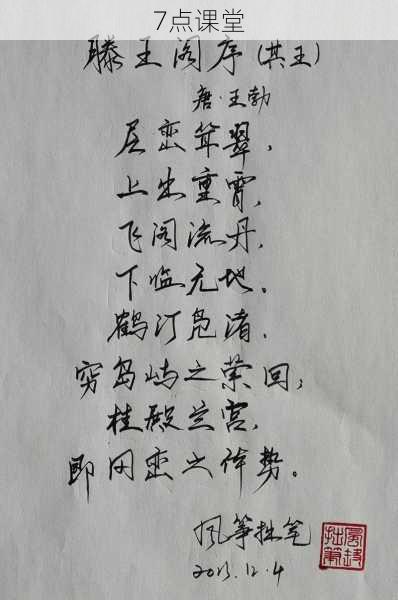 7点课堂
滕王阁序(其王)
唐·王勃
层峦耸翠,
上出重霄,
飞阁流丹,
下临无地。
鹤汀凫渚,
穷岛屿之萦回,
桂殿兰宫,
即冈峦之体势。
风筝拙笔
2013.12.4